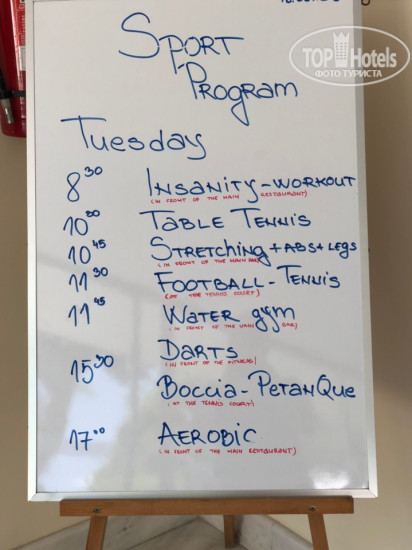 TOPHotels
ФОТО ТУРИСТА
SPORT
PROGRAM
Tuesday
8 30 INSANITY-WORKOUT
(IN FRONT OF THE MAIN RESTAURANT)
TABLE TENNIS
10 45 STRETCHING + ABS + LEGS
(IN FRONT OF THE MAIN BAR)
11 30 FOOTBALL-TENNIS
(AT THE TENNIS COURT)
11 45 WATER gym
(IN FRONT OF THE MAIN BAR)
DARTS
(IN FRONT OF THE FITNESS)
15 30
BOCCIA-PETANQUE
(AT THE TENNIS COURT)
17 00 AEROBIC
(IN FRONT OF THE MAIN RESTAURANT)